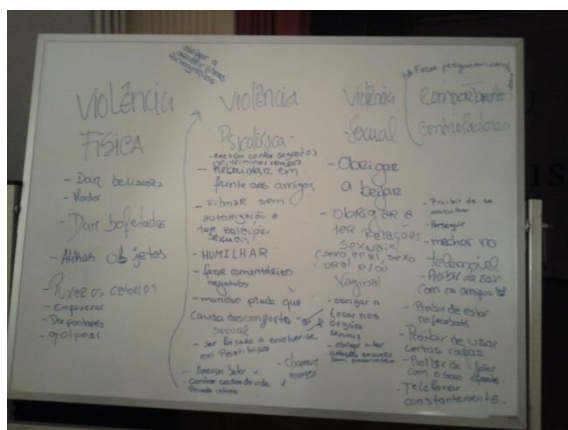 Violência
Física
- Dar beliscões
- Morder
- Dar bofetadas
- Atirar objetos
- Puxar os cabelos
- Empurrar
- Dar pontapés
- golpear
Violência
Psicológica
- Ameaçar contar segredos
- Rebaixar em
frente aos amigos
- Filmar sem
autorização a
ter relações
sexuais
- HUMILHAR
- fazer comentários
negativos
- mandar piada que
causa desconforto
sexual
- ser forçado a envolver-se
em Prostituição
- Ameaçar bater
- Contar coisas da vida
privada íntima
- Chamar
nomes
Violência
Sexual
- Obrigar
a beijar
- OBRIGAR A
TER RELAÇÕES
SEXUAIS
(sexo anal, sexo
oral e/ou
Vaginal
- obrigar a
tocar nos
órgãos
sexuais
- obrigar a ter
relações sexuais
sem preservativo
Fazer perguntas
comportamentos
controladores
- Proibir de se
- Perseguir
- mexer no
telemóvel
- Proibir de sair
com os amigos
- Proibir de estar
no facebook
- Proibir de usar
certas roupas
- Proibir de falar
com o sexo oposto
- Telefonar
constantemente